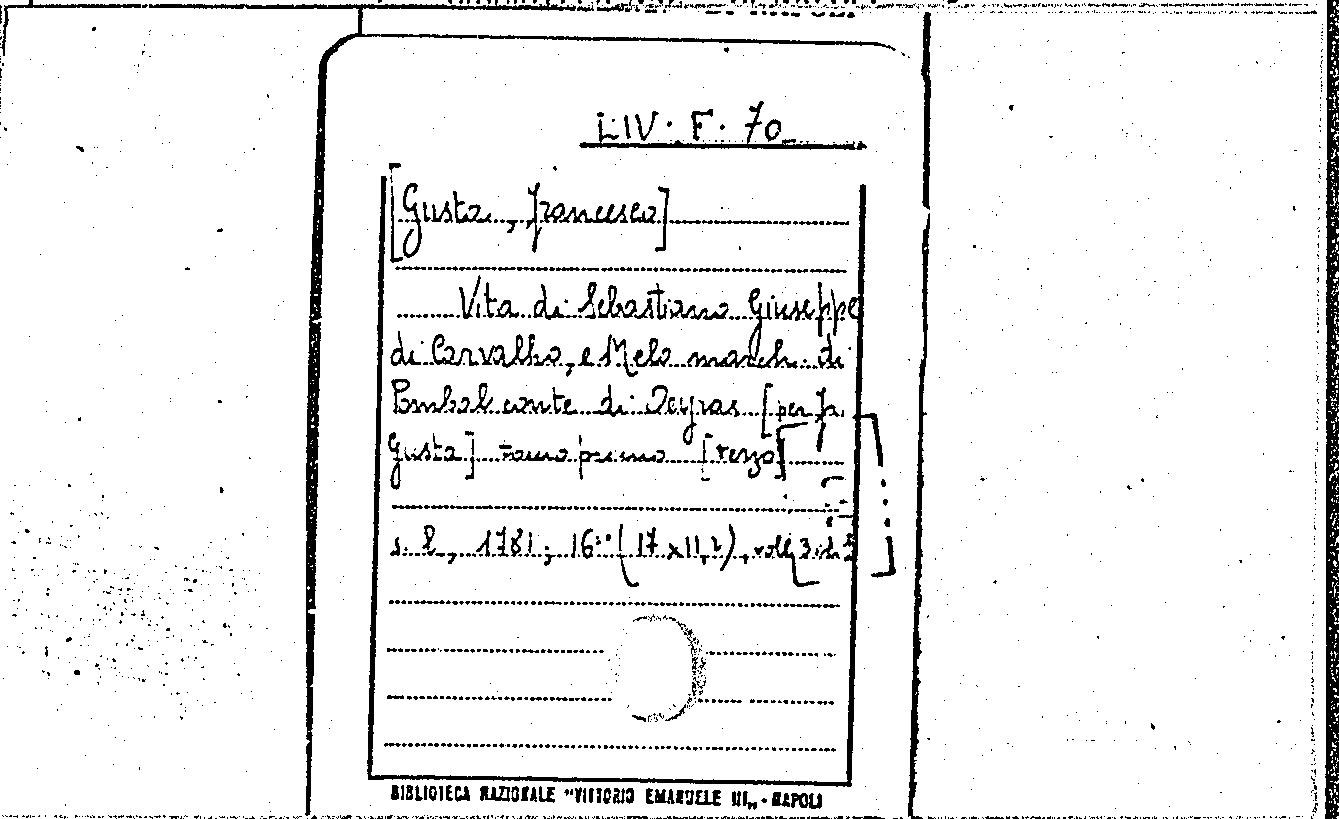 LIV. F. 70
[Gusta, Francesco]
Vita di Sebastiano Giuseppe
di Carvalho, e Melo march. di
Pombal conte di Oeyras [per Fr.
Gusta] tomo primo [terzo]
s. l., 1781; 16° (17 x 11,2), voll. 3
BIBLIOTECA NAZIONALE "VITTORIO EMANUELE III„ - NAPOLI